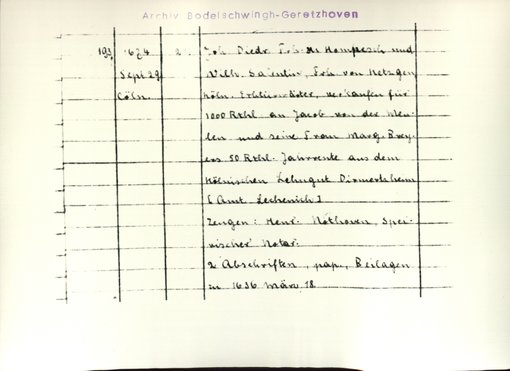 Archiv Bodelschwingh-Geretzhoven
193 1674 2. Joh. Diedr. Frh. v. Hompesch und
Sept 29 Wilh. Salentin, Frh. von Netzgen
Cöln. köln. Erbtürwärter, verkaufen für
1000 Rthl. an Jacob von der Meu-
len und seine Frau Marg. Brey-
ers 50 Rthl. Jahrrente aus dem
Kölnischen Lehngut Dirmertzheim
[Amt Lechenich]
Zeugen: Henr. Nothoven, Spei-
rischer Notar.
2 Abschriften, pap., Beilagen
zu 1636 März 18